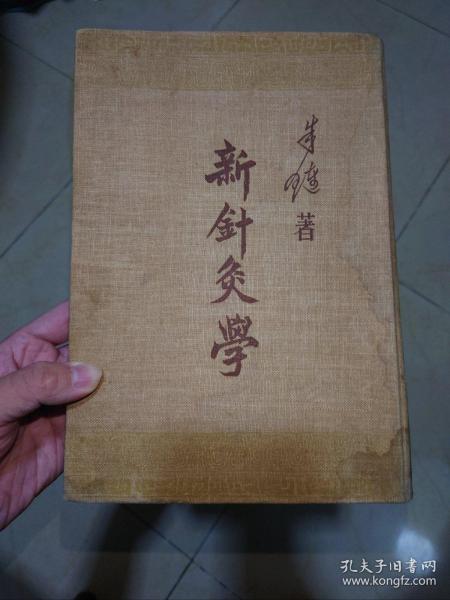 朱琏 著
新針灸學
孔夫子旧书网
www.kongfz.com